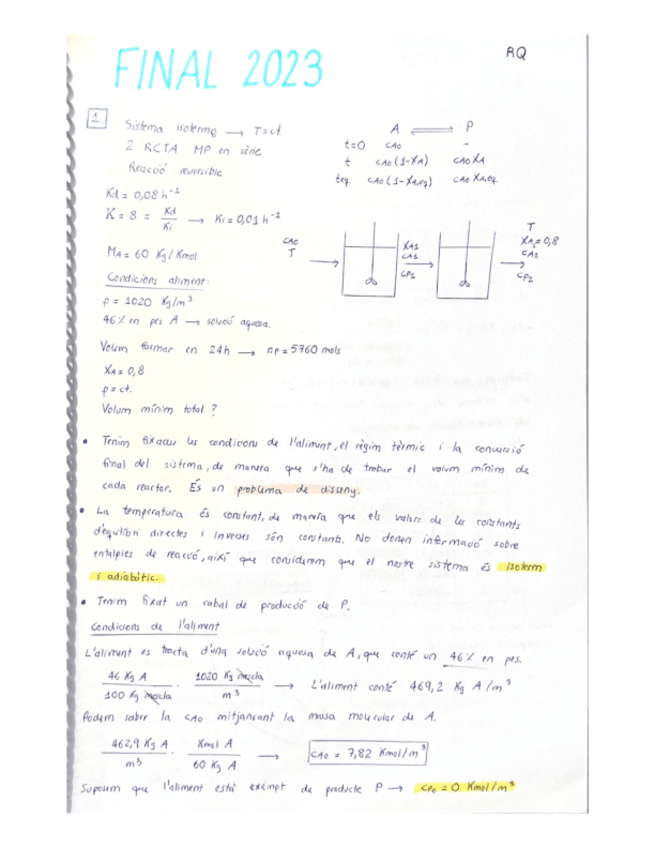 FINAL 2023
RQ
1.
Sistema isoterme → T=ct.
2 RCTA MP en sèrie
Reacció reversible
Kd = 0,08 h⁻¹
K = 8 = Kd/Ki → Ki = 0,01 h⁻¹
MA = 60 Kg/Kmol
Condicions aliment:
ρ = 1020 Kg/m³
46% en pes A → solució aquosa.
Volem formar en 24h → np = 5760 mols
XA = 0,8
ρ = ct.
Volum mínim total ?
A ⇌ P
t=0 CAO -
t CAO(1-XA) CAO XA
teq. CAO(1-XA,eq) CAO XA,eq.
CAO
T
XA1
CA1
CP1
T
XA2=0,8
CA2
CP2
• Tenim fixades les condicions de l'aliment, el règim tèrmic i la conversió
final del sistema, de manera que s'ha de trobar el volum mínim de
cada reactor. És un problema de disseny.
• La temperatura és constant, de manera que els valors de les constants
d'equilibri directes i inverses són constants. No donen informació sobre
entalpies de reacció, així que considerem que el nostre sistema és isoterm
i adiabàtic.
• Tenim fixat un cabal de producció de P.
Condicions de l'aliment
L'aliment es tracta d'una solució aquosa de A, que conté un 46% en pes.
46 Kg A / 100 Kg mezcla · 1020 Kg mezcla / m³ → L'aliment conté 469,2 Kg A/m³
Podem saber la CAO mitjançant la massa molecular de A.
462,9 Kg A / m³ · Kmol A / 60 Kg A → CAO = 7,82 Kmol/m³
Suposem que l'aliment està exempt de producte P → CPO = 0 Kmol/m³